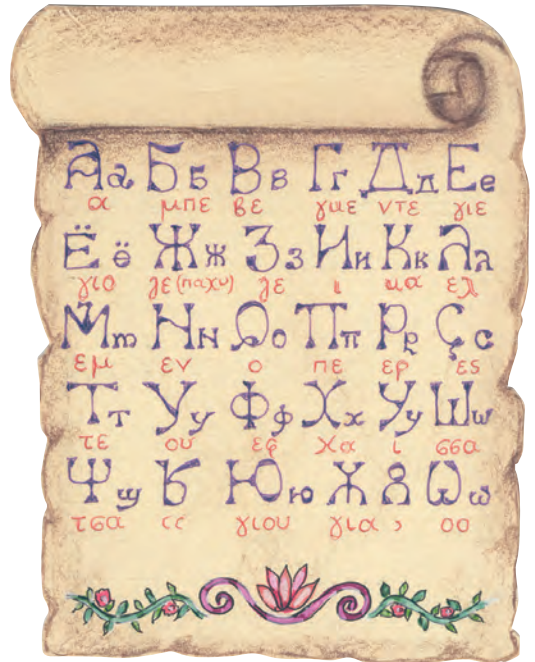 Аа Бб Вв Гг Дд Ее
α μπε βε γκε ντε γιε
Ёё Жж Зз Ии Кк Лл
γιο ζε(παχυ) ζε ι κα ελ
Мм Нн Оо Пп Рр Сс
εμ εν ο πε ερ ες
Тт Уу Фф Хх Уу Шш
τε ου εφ χα ι σσα
Ѱщ Юю Ѫ Ѡѡ
τσα ςς γιου για οο